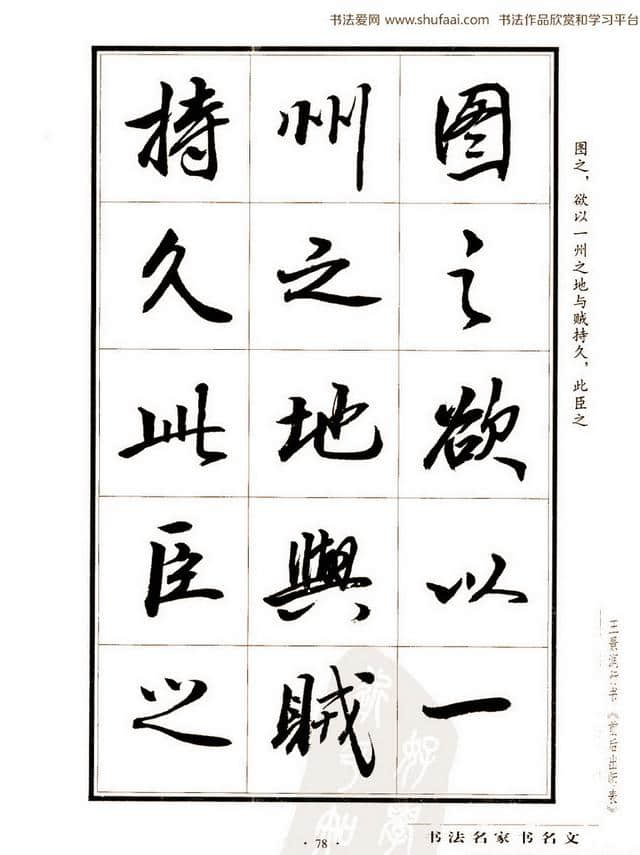 书法爱网 www.shufaai.com 书法作品欣赏和学习平台
图之欲以一
州之地與賊
持久此臣之
图之，欲以一州之地与贼持久，此臣之
王景润行书《前后出师表》
书法名家书名文
·78·